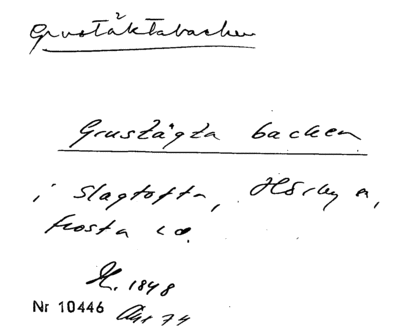 Grustäktabacken
Grustägta backen
i Slagtofta, Hörby s,
Frosta hd.
H. 1848
Nr 10446 Akt 74